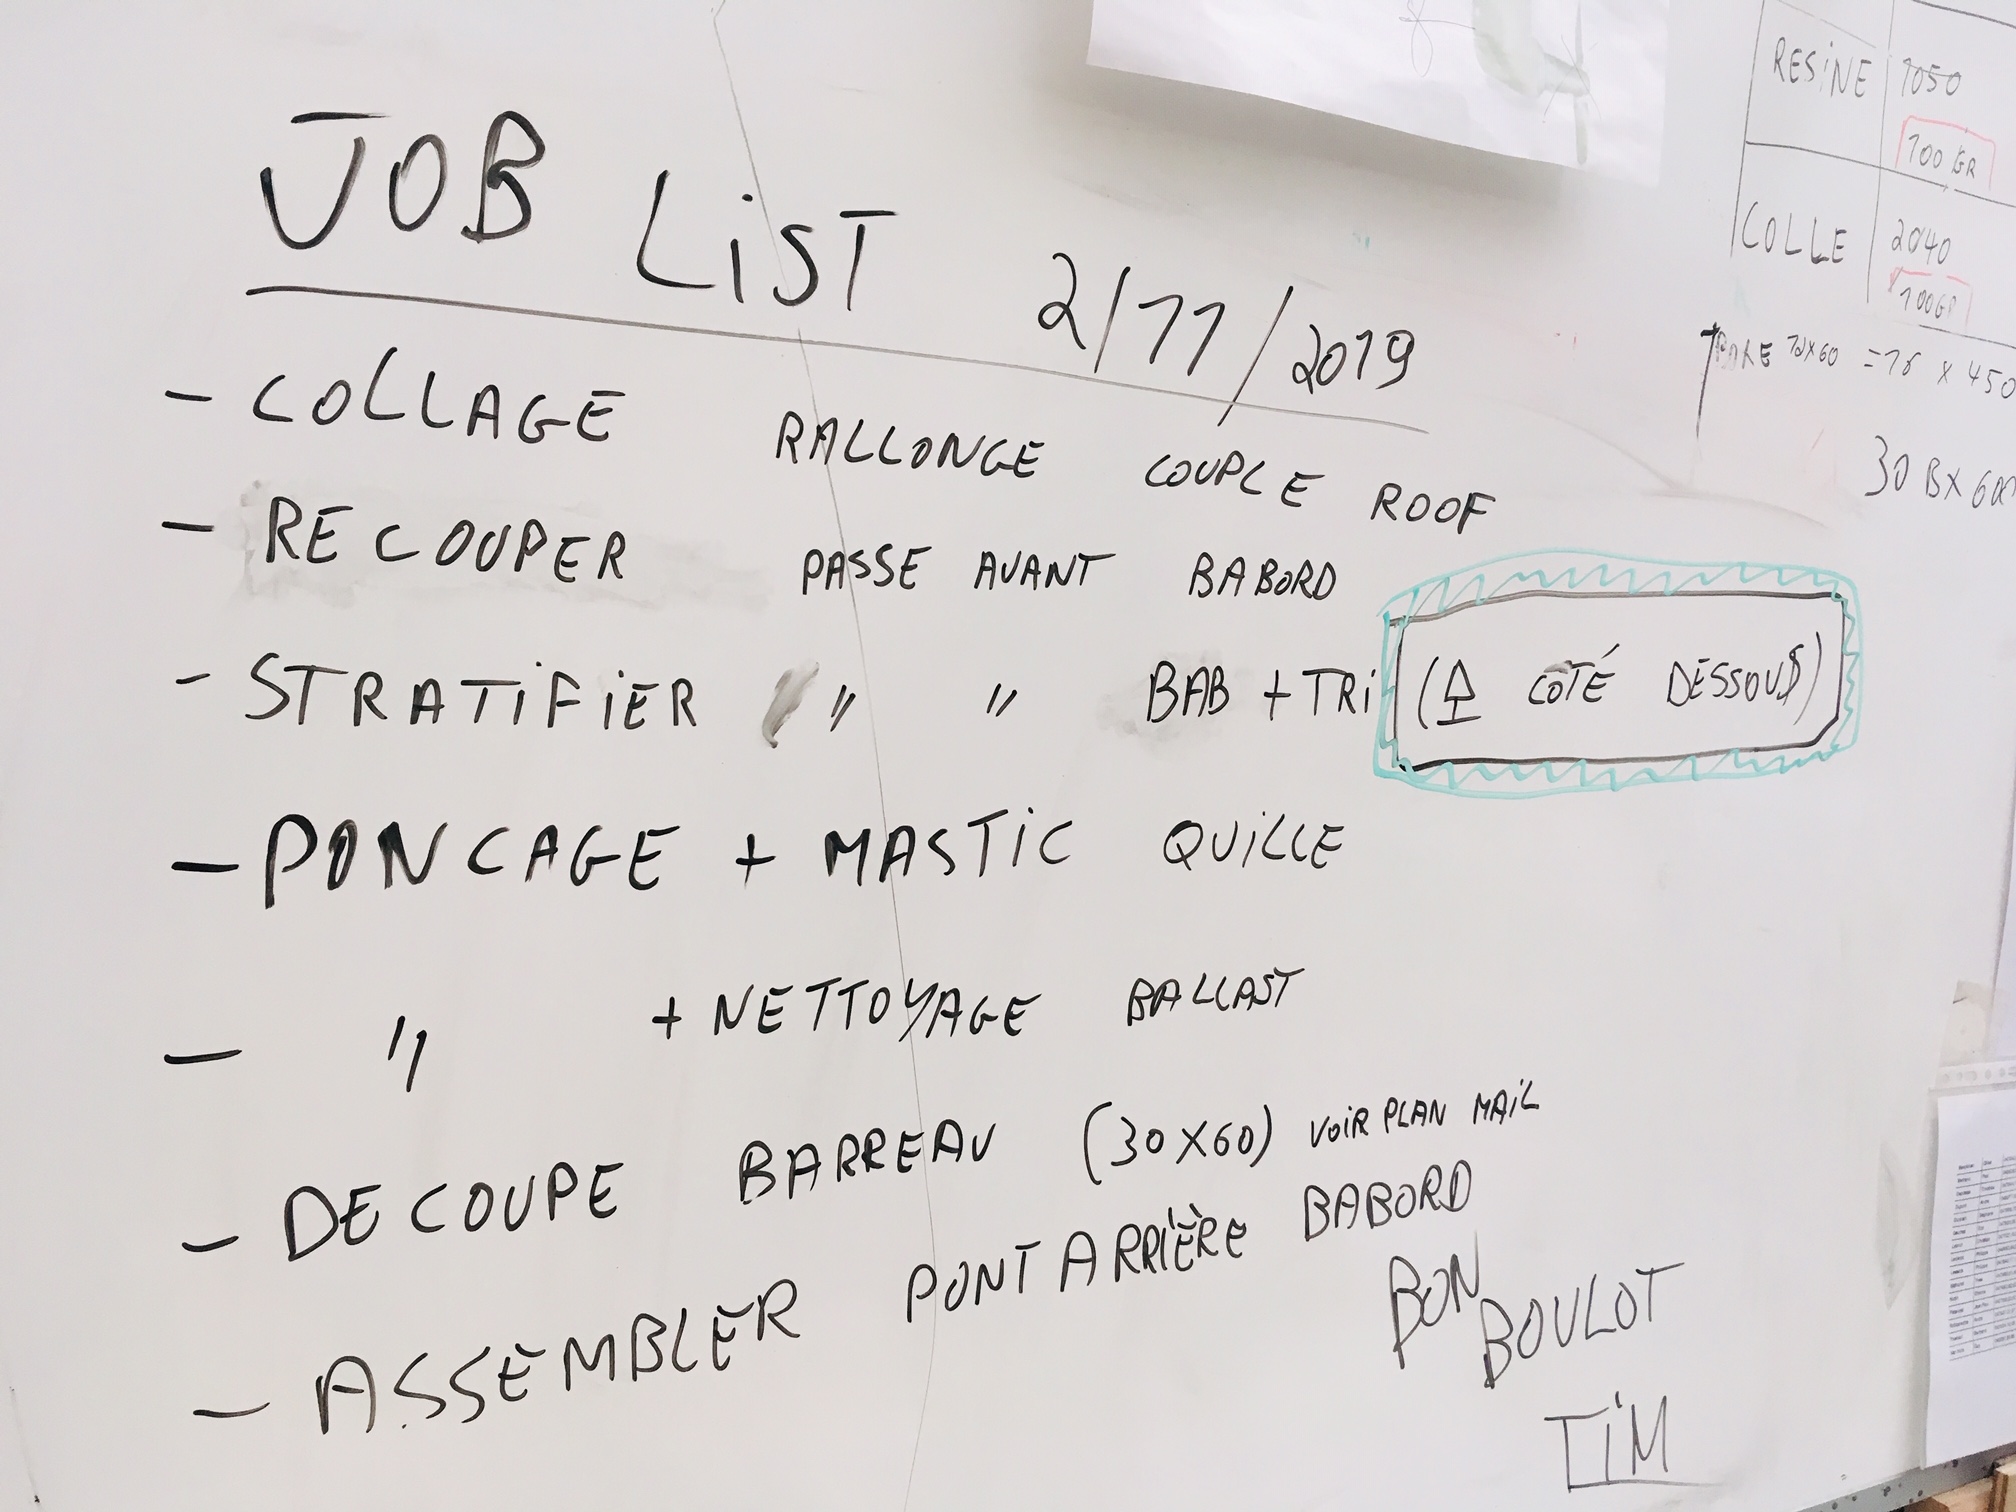 JOB LiST 2/11/2019
- COLLAGE RALLONGE COUPLE ROOF
- RECOUPER PASSE AVANT BABORD
- STRATiFiER " " BAB + TRi ( CÔTÉ DESSOUS)
- PONCAGE + MASTiC QUiLLE
- " + NETTOYAGE BALLAST
- DECOUPE BARREAU (30X60) VOiR PLAN MAiL
- ASSEMBLER PONT ARRIÈRE BABORD
BON BOULOT
TiM
RESiNE 1050
100 GR
COLLE 2040
100GR